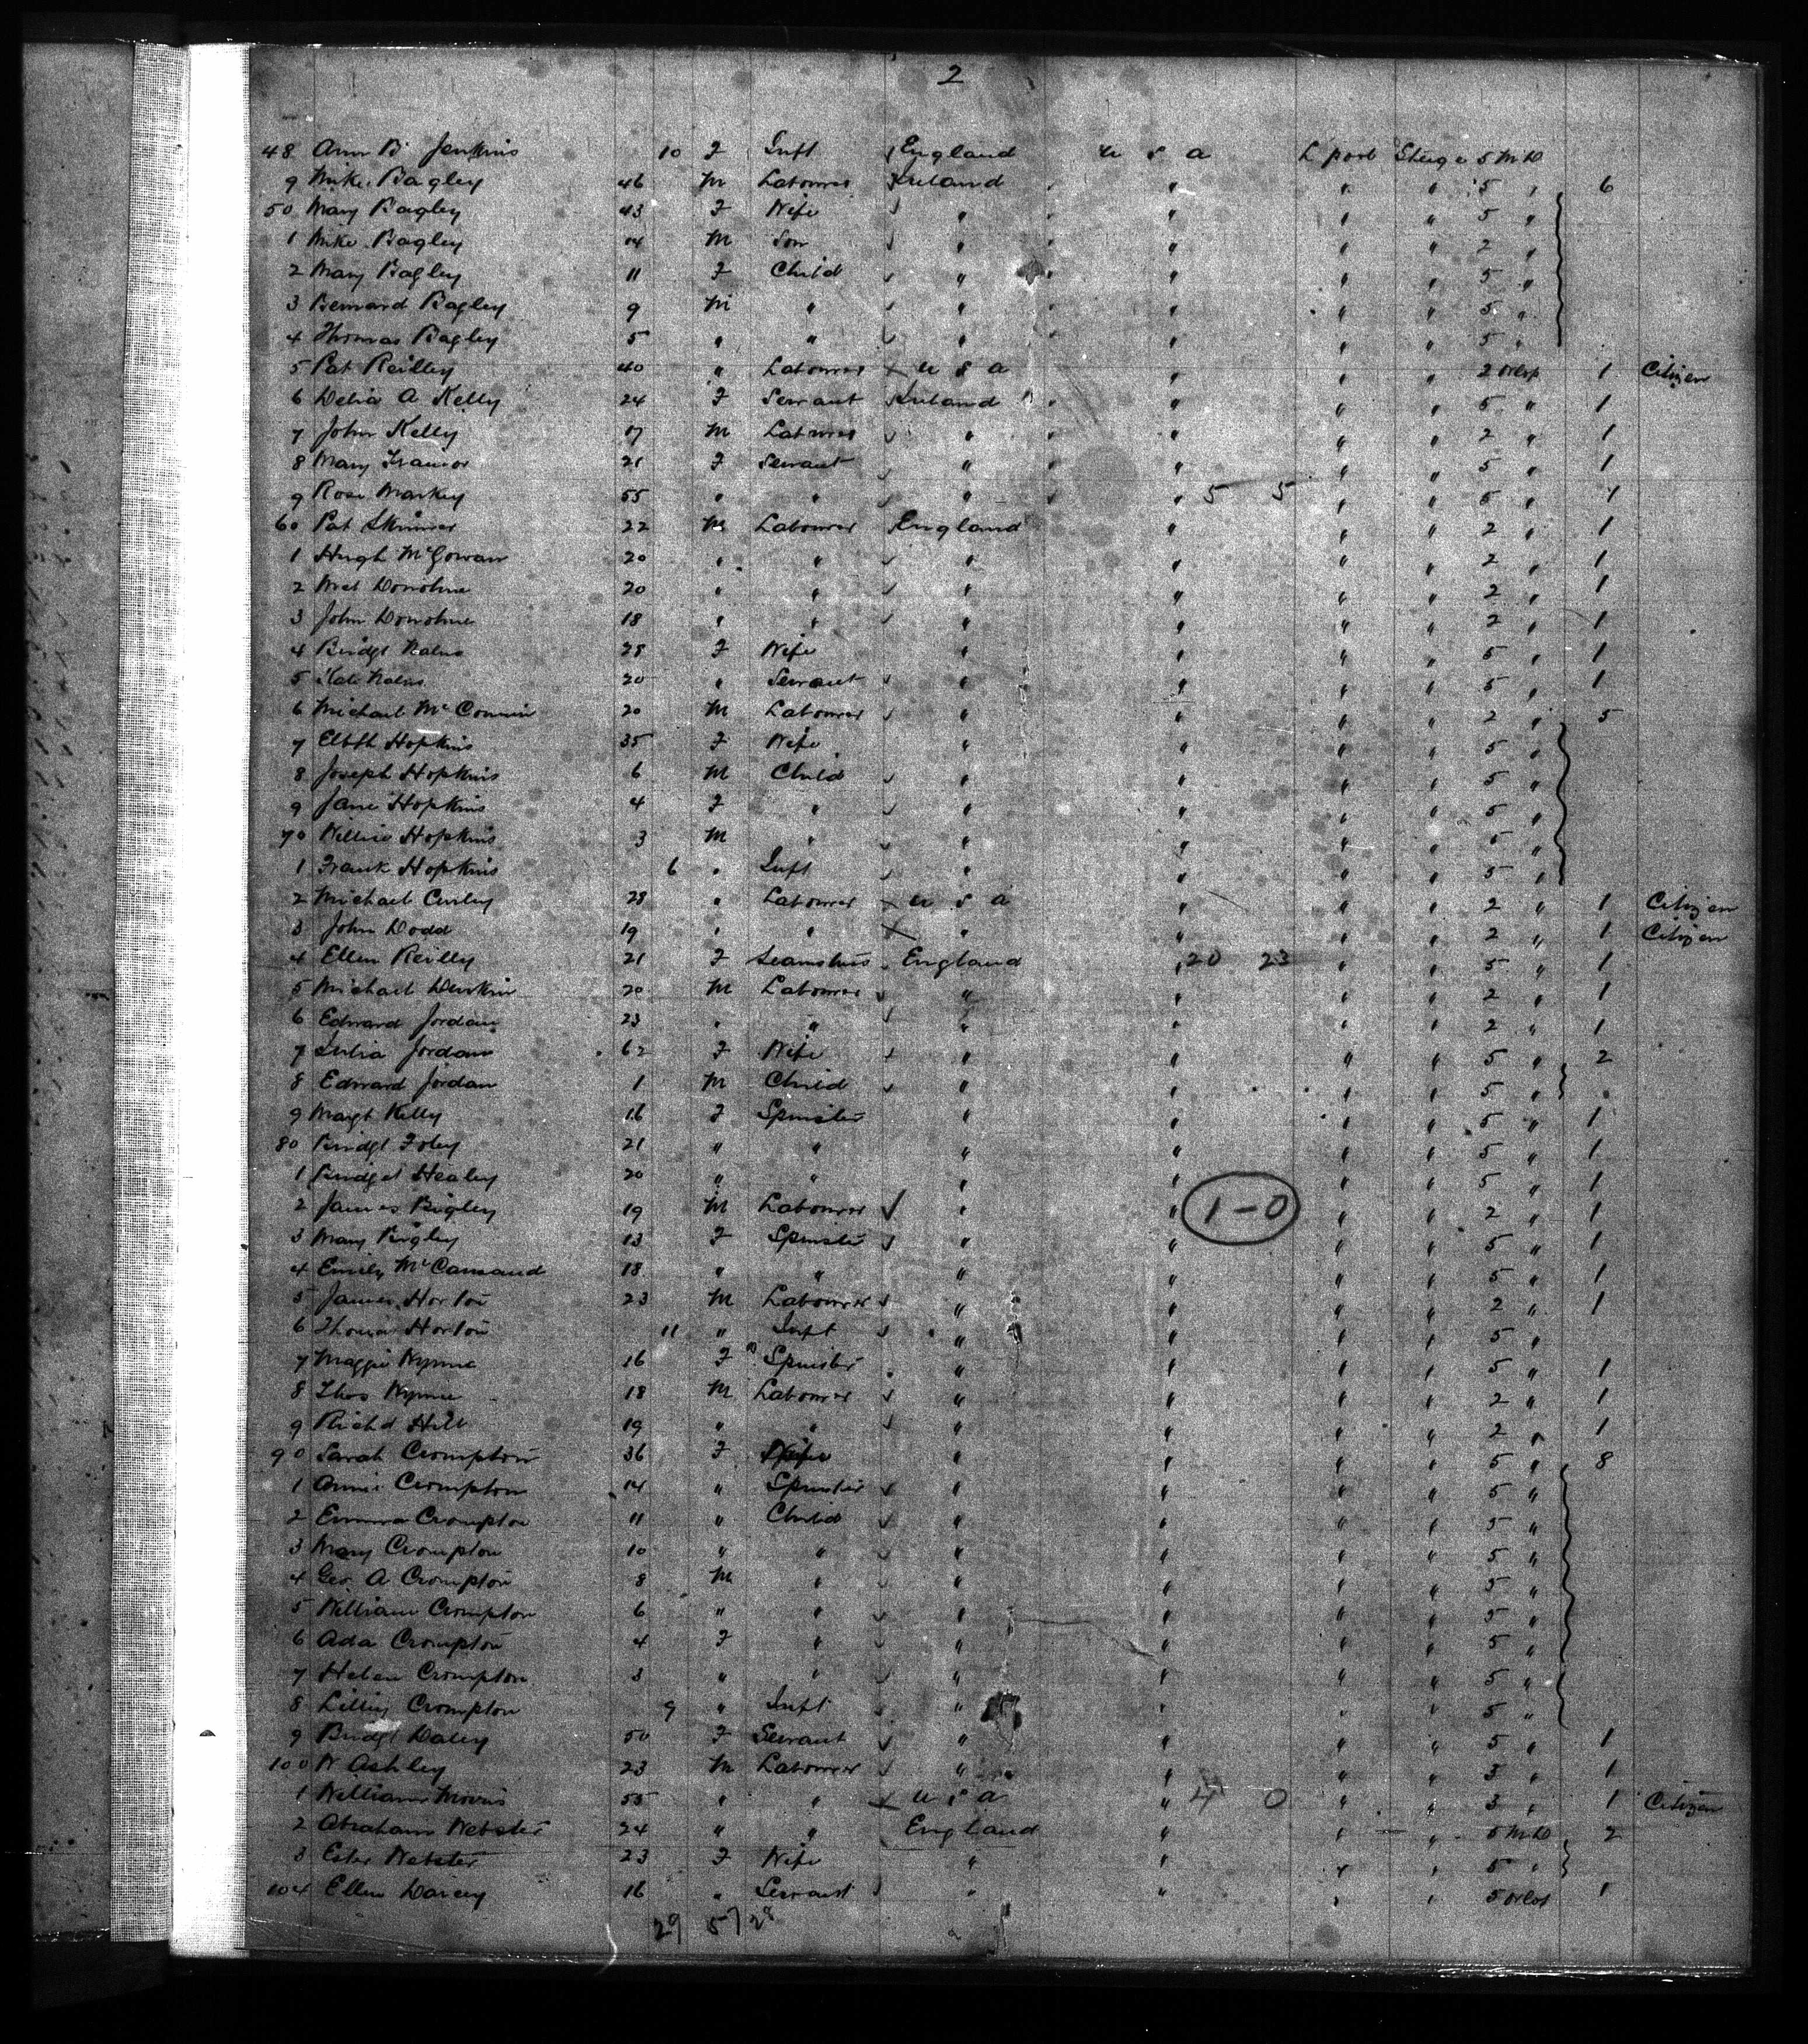 2
48 Ann B Jenkins 10 F Inft England U S A L pool Steerge 5 M D
9 Mike Bagley 46 M Labourer Ireland " " " 5 " 6
50 Mary Bagley 43 F Wife " " " " 5 "
1 Mike Bagley 14 M Son " " " " 2 "
2 Mary Bagley 11 F Child " " " " 5 "
3 Bernard Bagley 9 M " " " " " 5 "
4 Thomas Bagley 5 " " " " " " 5 "
5 Pat Reilley 40 " Labourer U S A " " " 2 Orlop 1 Citizen
6 Delia A Kelly 24 F Servant Ireland " " " 5 " 1
7 John Kelly 17 M Labourer " " " " 2 " 1
8 Mary Trainor 21 F Servant " " " " 5 " 1
9 Rose Markey 55 " " " " 5 5 " " 5 " 1
60 Pat Skinner 22 M Labourer England " " " 2 " 1
1 Hugh McGowan 20 " " " " " " 2 " 1
2 Donohue 20 " " " " " " 2 " 1
3 John Donohue 18 " " " " " " 2 " 1
4 Bridgt 28 F Wife " " " " 5 " 1
5 Kate 20 " Servant " " " " 5 " 1
6 Michael 20 M Labourer " " " " 2 " 5
7 Elbth Hopkins 35 F Wife " " " " 5 "
8 Joseph Hopkins 6 M Child " " " " 5 "
9 Jane Hopkins 4 F " " " " " 5 "
70 Willie Hopkins 3 M " " " " " 5 "
1 Frank Hopkins 6 " Inft " " " " 5 "
2 Michael Curley 28 " Labourer U S A " " " 2 " 1 Citizen
3 John Dodd 19 " " " " " " 2 " 1 Citizen
4 Ellen Reilly 21 F England " 20 23 " " 5 " 1
5 Michael Durkin 20 M Labourer " " " " 2 " 1
6 Edward Jordan 23 " " " " " " 2 " 1
7 Julia Jordan 62 F Wife " " " " 5 " 2
8 Edward Jordan 1 M Child " " " " 5 "
9 Margt Kelly 16 F Spinster " " " " 5 " 1
80 Bridgt Foley 21 " " " " " " 5 " 1
1 Bridget Healey 20 " " " " " " 5 " 1
2 James Bigley 19 M Labourer " " 1-0 " " 2 " 1
3 Mary Bigley 13 F Spinster " " " " 5 " 1
4 Emily 18 " " " " " " 5 " 1
5 James Horton 23 M Labourer " " " " 2 " 1
6 Thomas Horton 11 " Inft " " " " 5 "
7 Maggie Wynne 16 F Spinster " " " " 5 " 1
8 Thos Wynne 18 M Labourer " " " " 2 " 1
9 Richd Hilt 19 " " " " " " 2 " 1
90 Sarah Crompton 36 F Wife " " " " 5 " 8
1 Annie Crompton 14 " Spinster " " " " 5 "
2 Emma Crompton 11 " Child " " " " 5 "
3 Mary Crompton 10 " " " " " " 5 "
4 Geo. A Crompton 8 M " " " " " 5 "
5 William Crompton 6 " " " " " " 5 "
6 Ada Crompton 4 F " " " " " 5 "
7 Helen Crompton 3 " " " " " " 5 "
8 Lilley Crompton 9 " Inft " " " " 5 "
9 Bridgt Daley 50 F Servant " " " " 5 " 1
100 W Ashley 23 M Labourer " " " " 3 " 1
1 William Morris 55 " " U S A " 4 0 " " 3 " 1 Citizen
2 Abraham Webster 24 " " England " " " 5 M D 2
3 Ester Webster 23 F Wife " " " " 5 "
104 Ellen Darcey 16 " Servant " " " " 5 Orlop 1
29 57 28